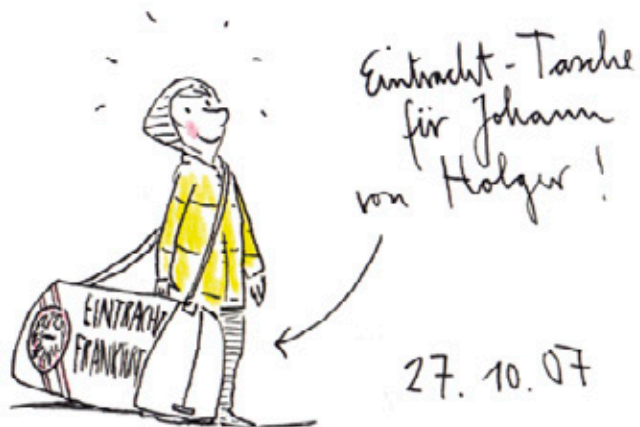 Eintracht-Tasche
für Johann
von Holger!
EINTRACHT
FRANKFURT
27. 10. 07